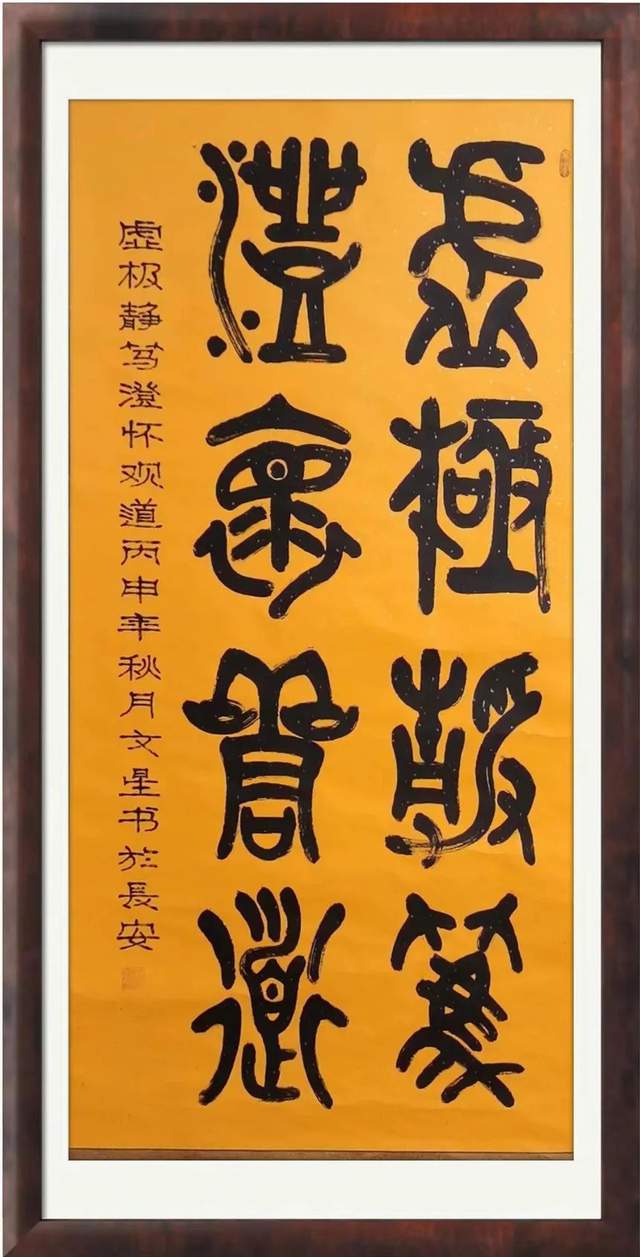 虚极静笃
澄怀观道
虚极静笃澄怀观道丙申年秋月文星书於長安